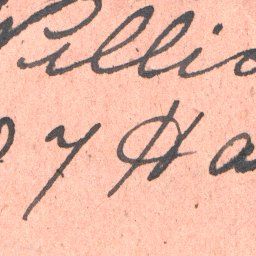 Willia
7 Ha